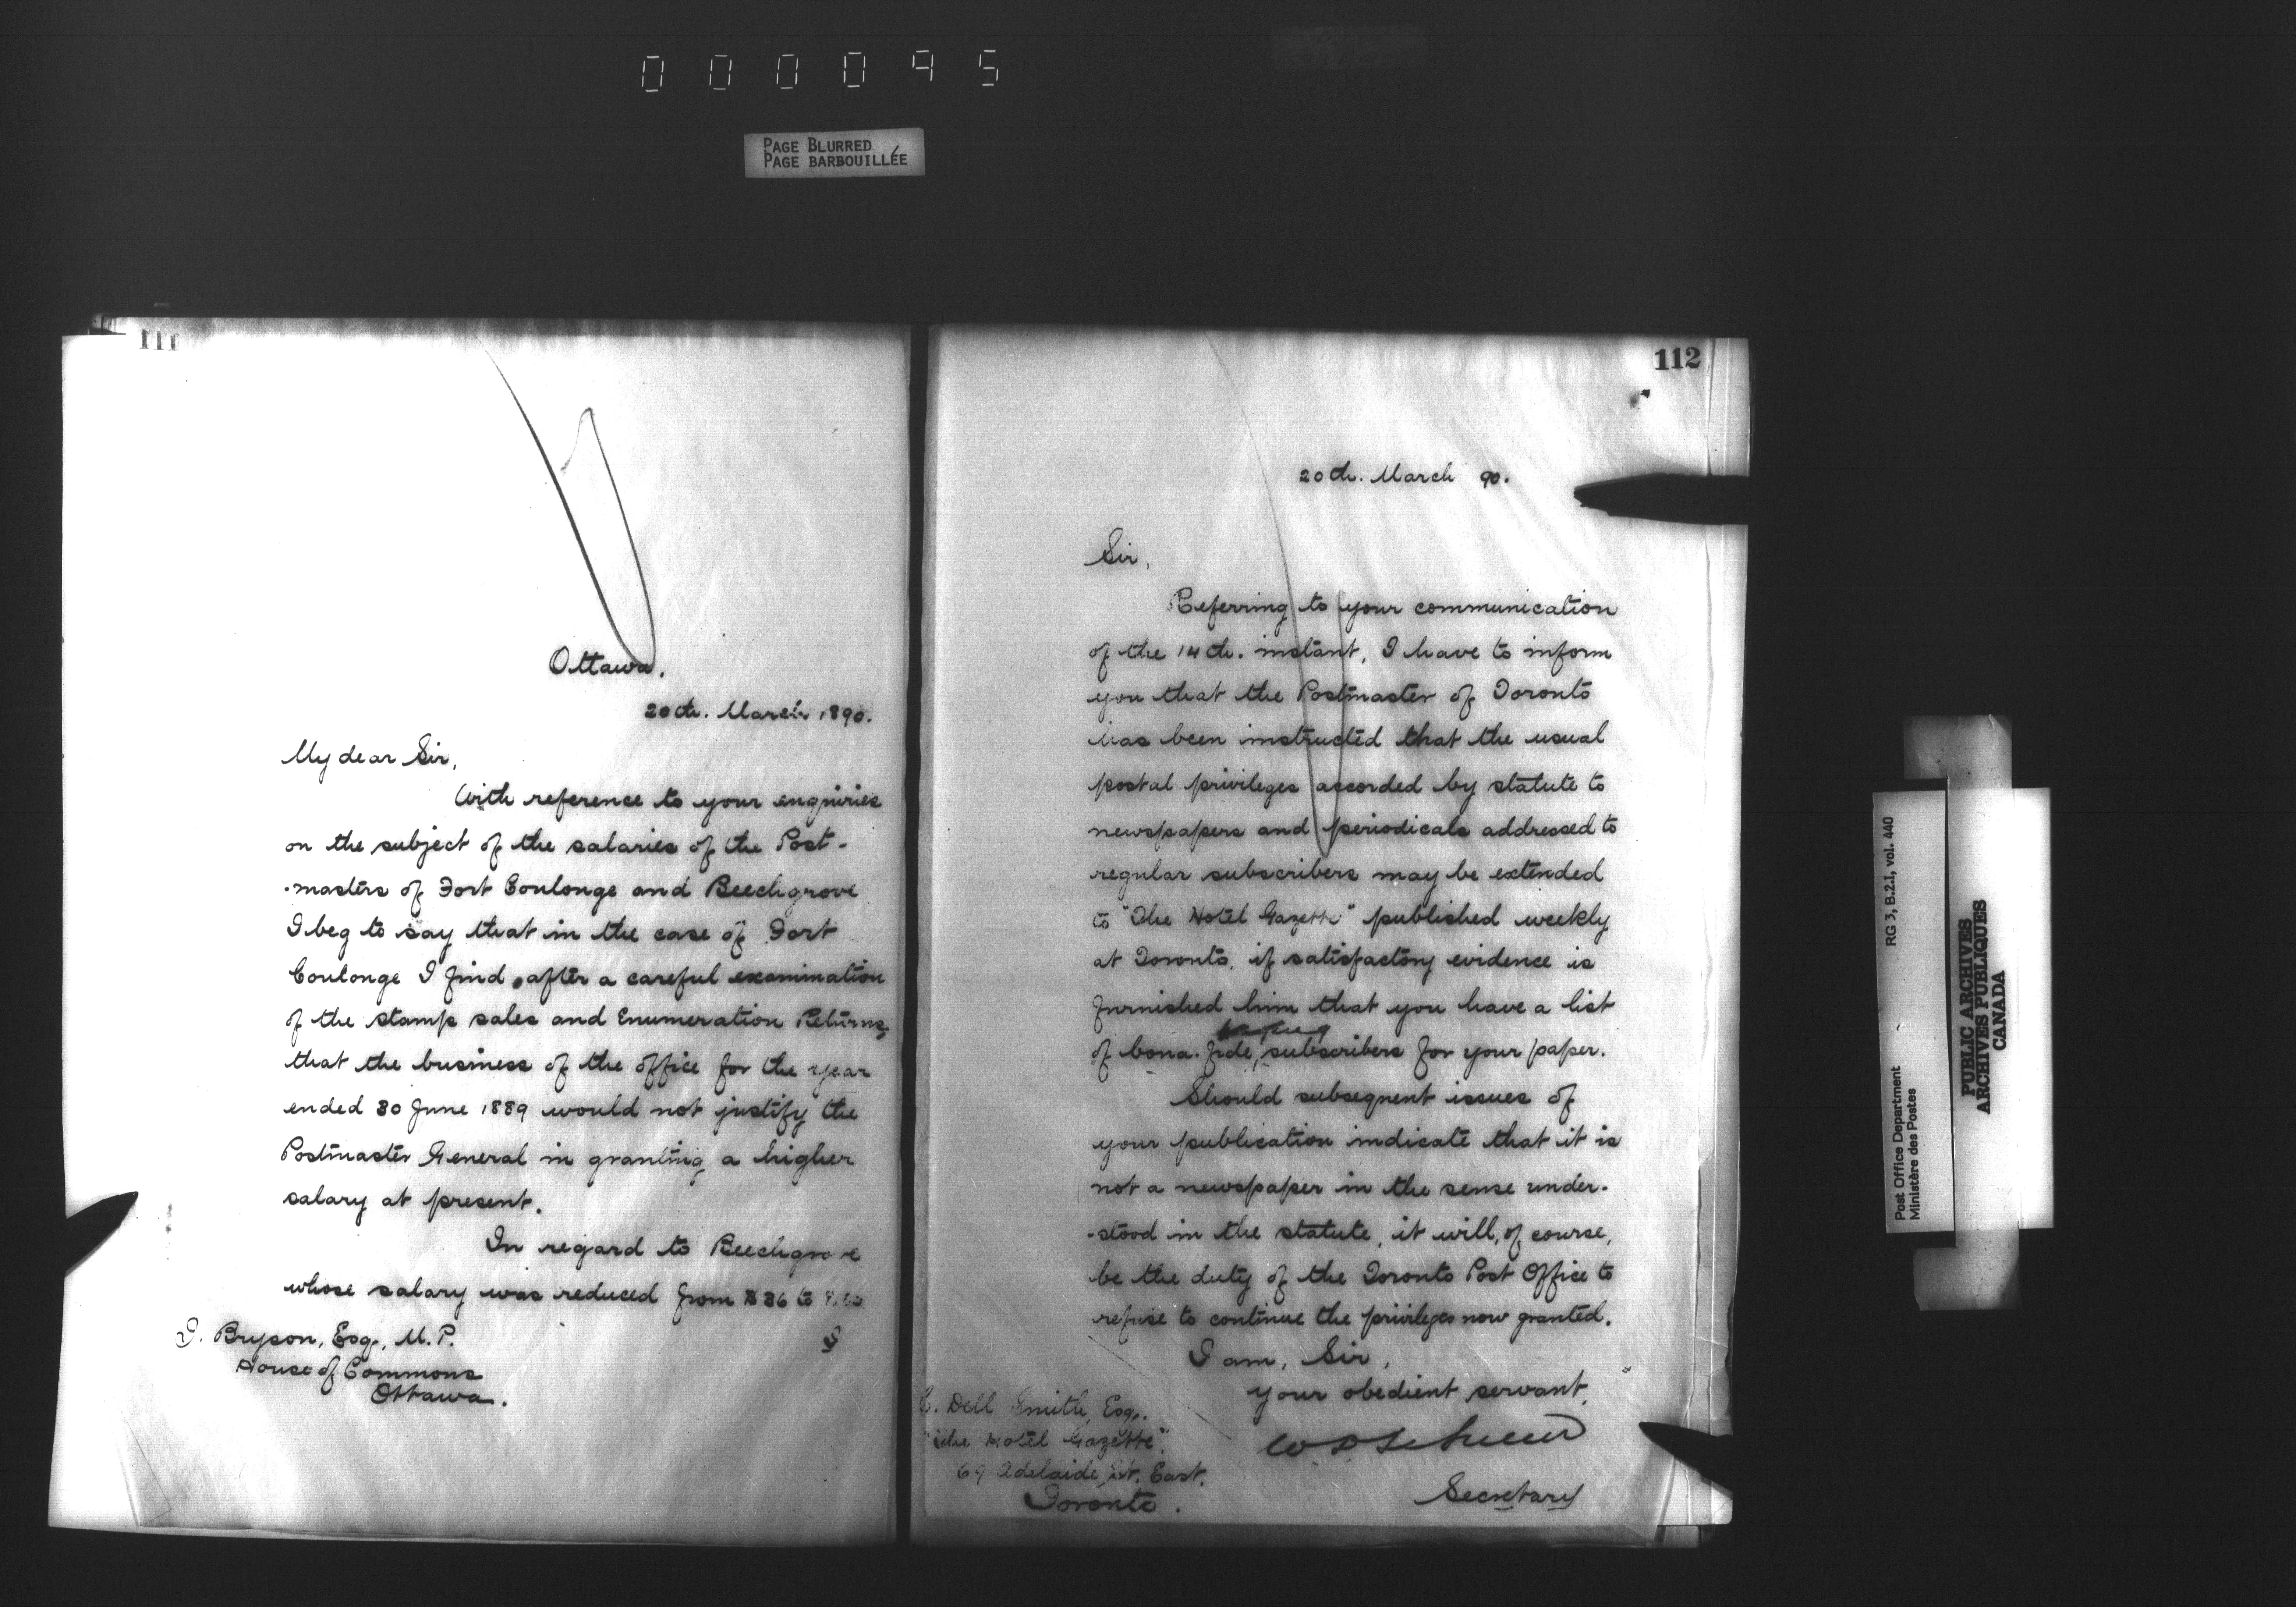 000095
PAGE BLURRED
PAGE BARBOUILLÉE
111
Ottawa.
20th. March 1890.
My dear Sir,
With reference to your enquiries
on the subject of the salaries of the Post-
-masters of Fort Coulonge and Beechgrove
I beg to say that in the case of Fort
Coulonge I find after a careful examination
of the stamp sales and Enumeration Returns,
that the business of the office for the year
ended 30 June 1889 would not justify the
Postmaster General in granting a higher
salary at present.
In regard to Beechgrove
whose salary was reduced from $36 to
Bryson, Esq., M.P.
House of Commons
Ottawa.
112
20th. March 90.
Sir,
Referring to your communication
of the 14th. instant, I have to inform
you that the Postmaster of Toronto
has been instructed that the usual
postal privileges accorded by statute to
newspapers and periodicals addressed to
regular subscribers may be extended
to "The Hotel Gazette" published weekly
at Toronto, if satisfactory evidence is
furnished him that you have a list
of bona. fide, subscribers for your paper.
Should subsequent issues of
your publication indicate that it is
not a newspaper in the sense under-
-stood in the statute, it will, of course,
be the duty of the Toronto Post Office to
refuse to continue the privileges now granted.
I am, Sir,
your obedient servant,
Secretary
Dell Smith, Esq.
"The Hotel Gazette".
69 Adelaide St. East.
Toronto.
RG 3, B.2.I, vol. 440
Post Office Department
Ministère des Postes
PUBLIC ARCHIVES
ARCHIVES PUBLIQUES
CANADA